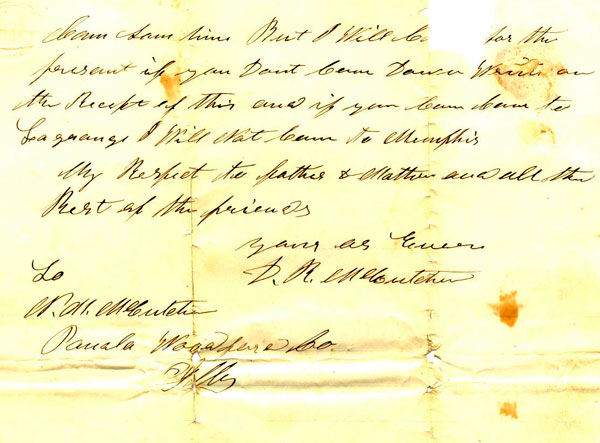 Cam Som time But I Will for the
present if you Dont Com Down Write on
the Recipt of this and if you Com Com to
Lagrange I Will Not Com to Memphis
My Respet to father & Mother and all the
Rest of the friends
yours as Ever
D. R. McCutchen
To
McCutchen
Panala Woodford Co.
Ill